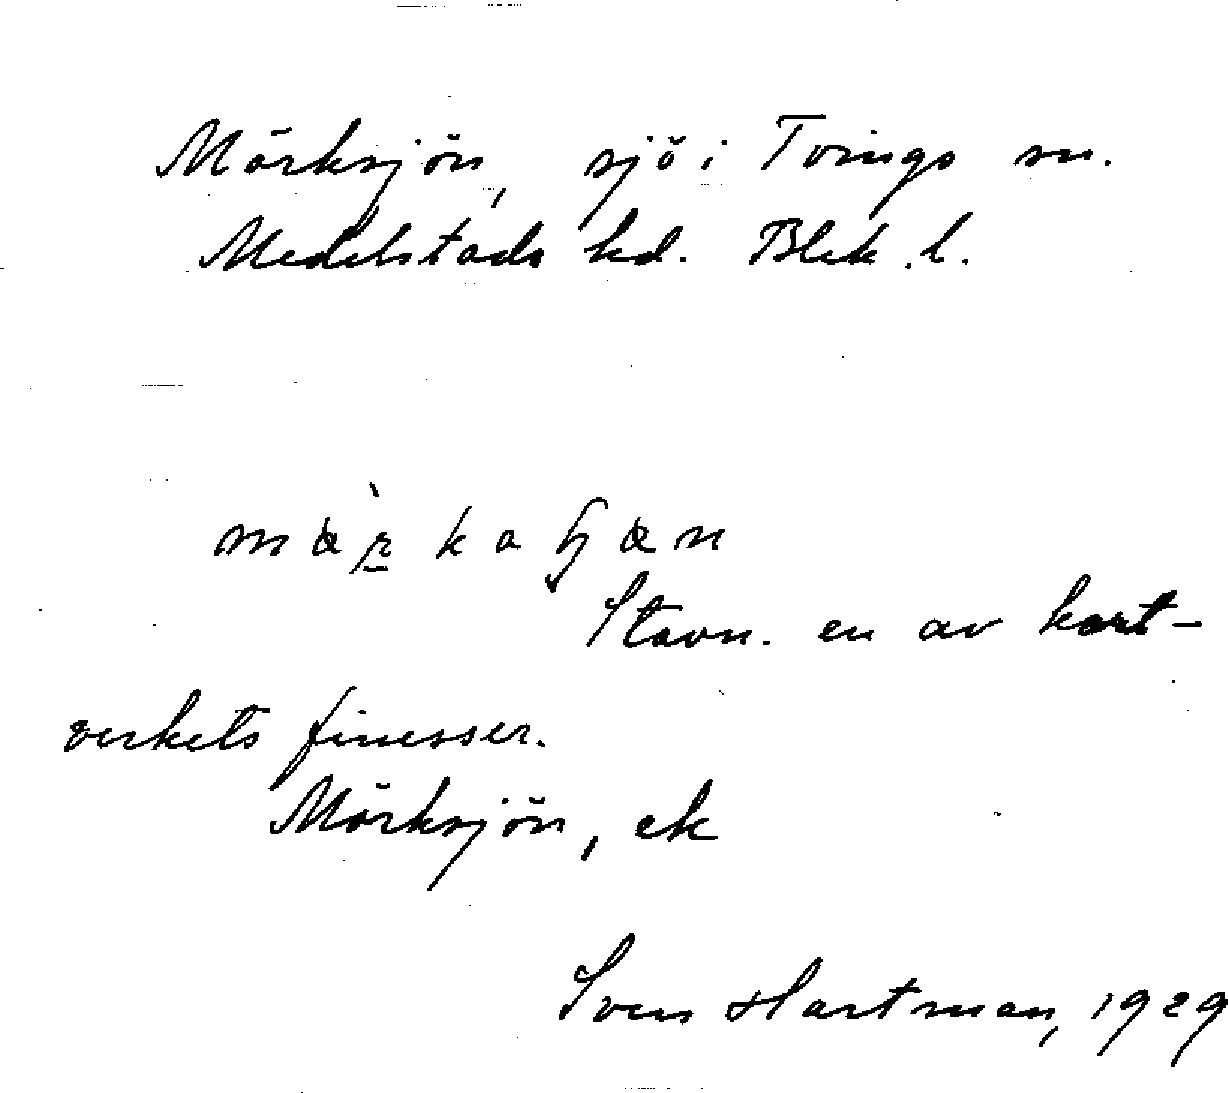 Mörksjön, sjö i Tvings sn.
Medelstads hd. Blek. l.
Stavn. en av kart-
verkets finesser.
Mörksjön, ek
Sven Hartman, 1929